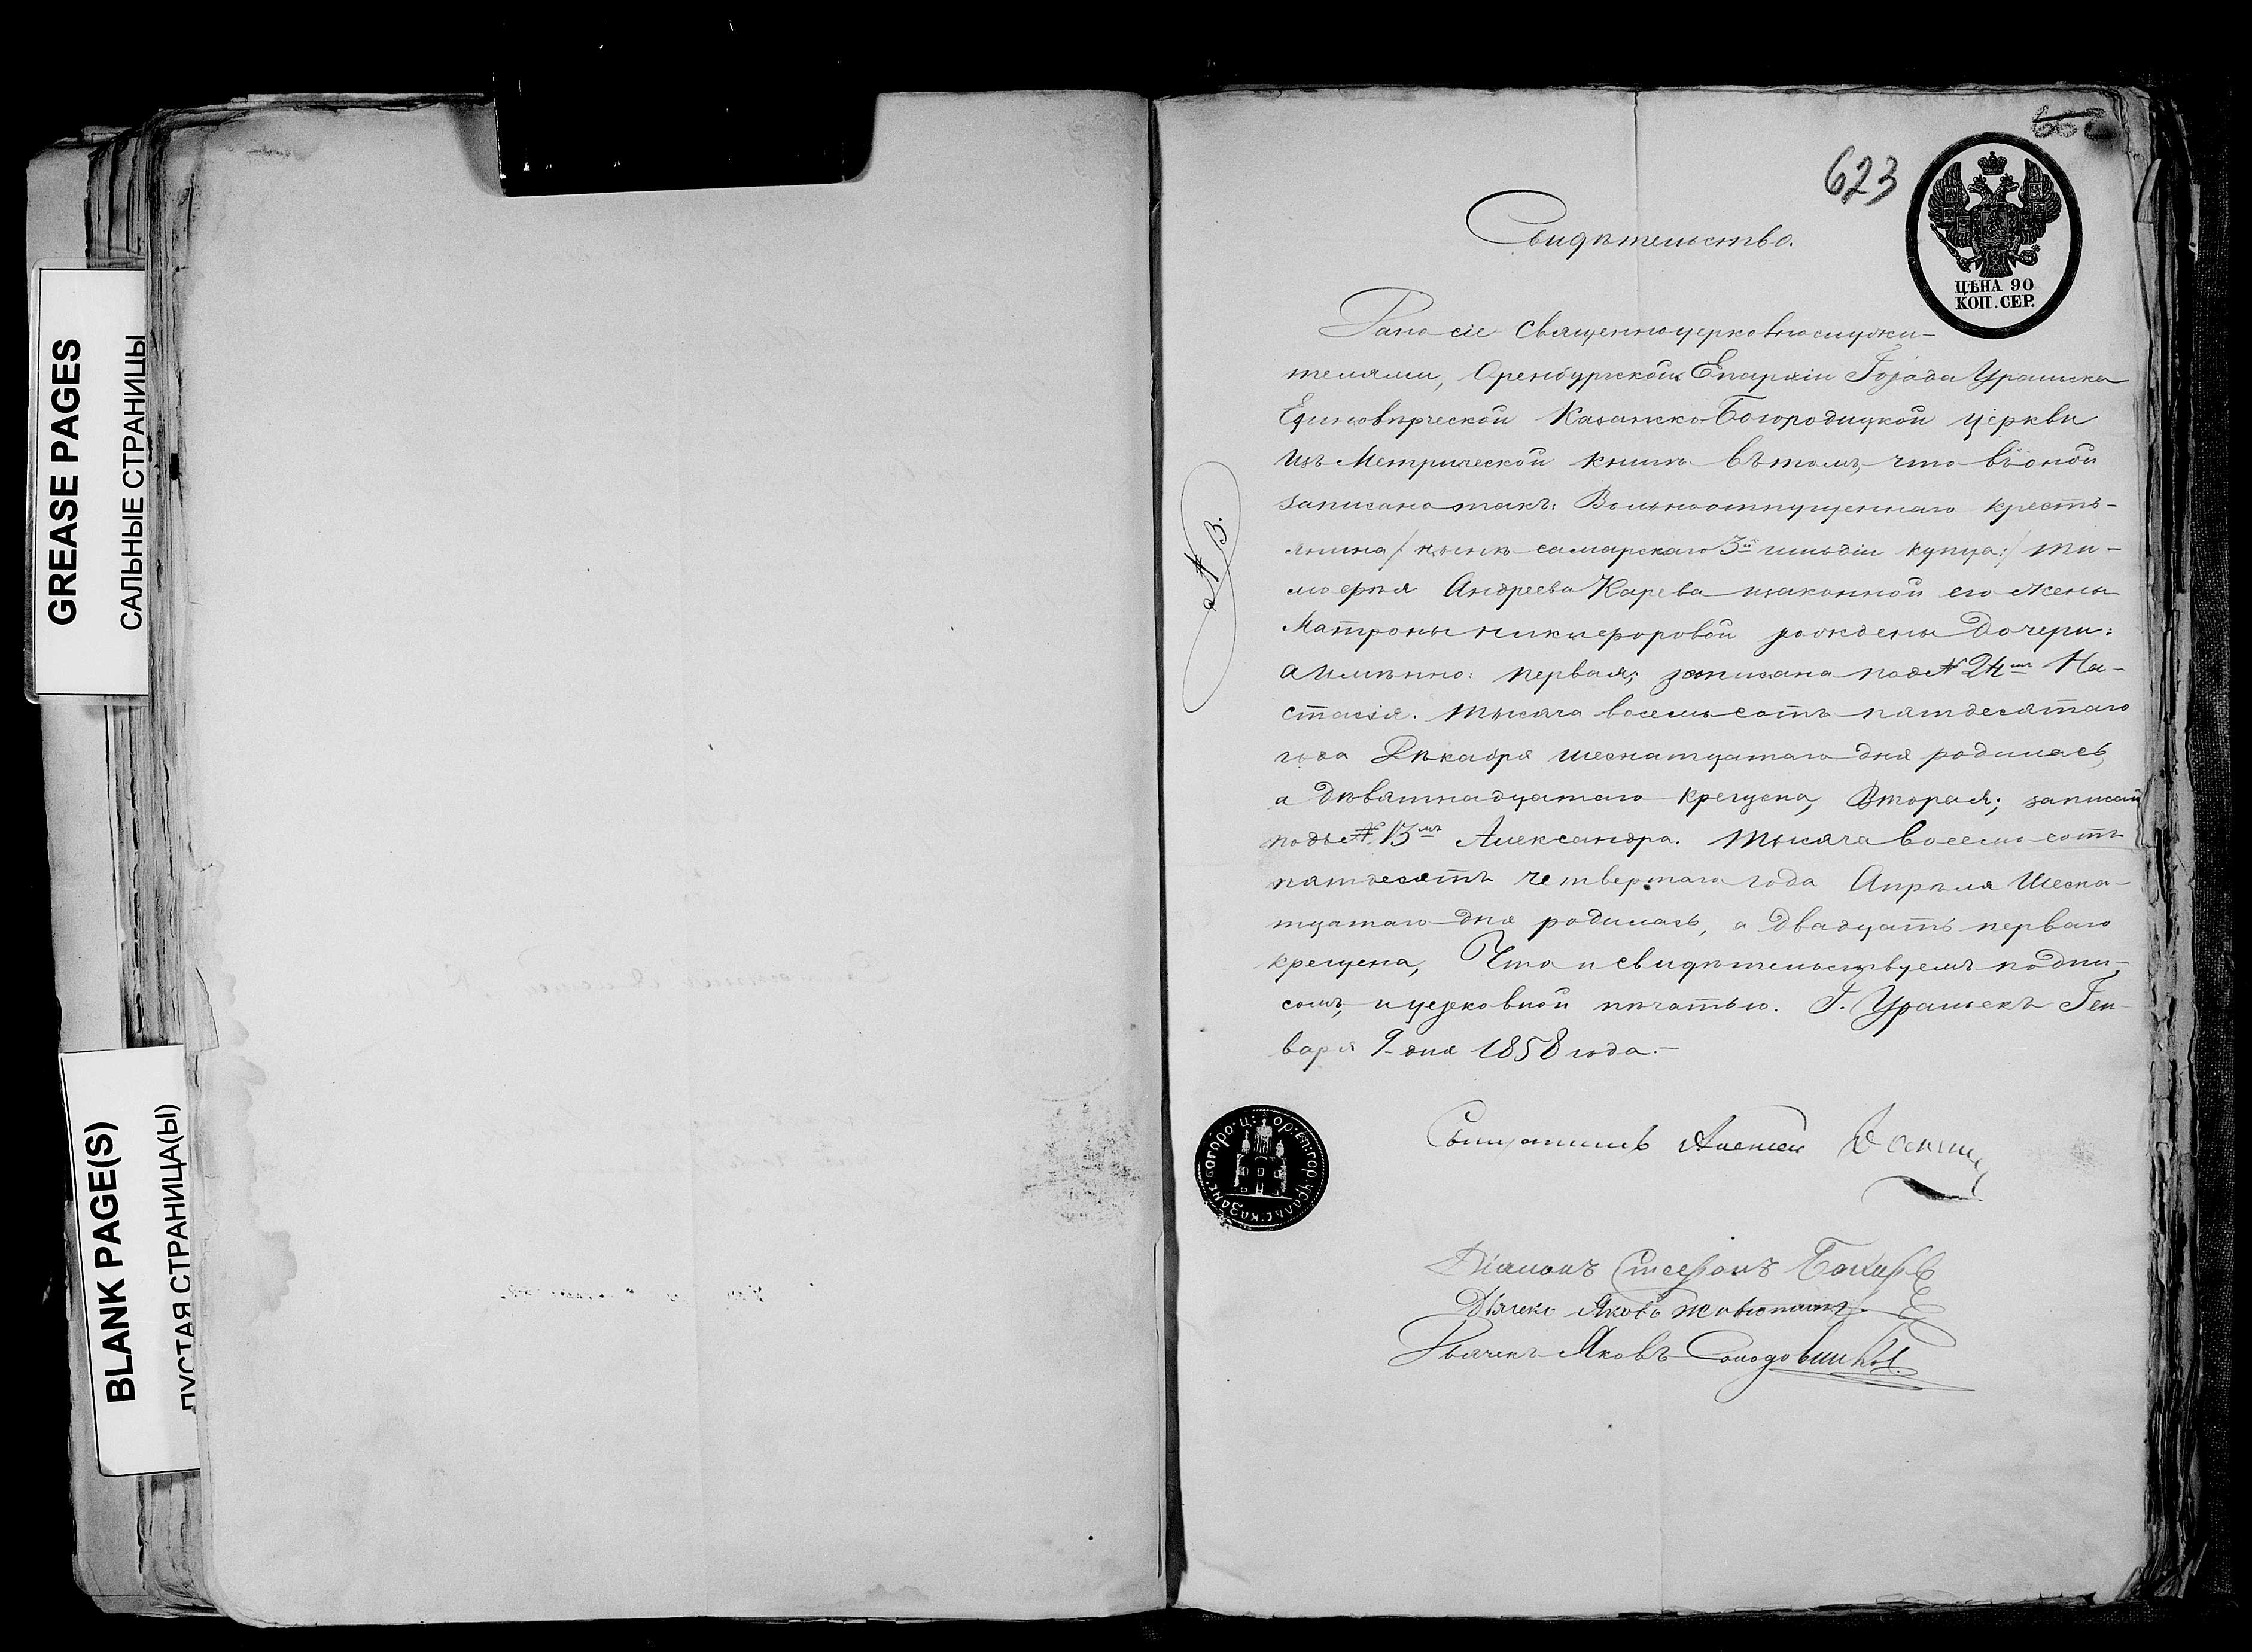 GREASE PAGES
САЛЬНЫЕ СТРАНИЦЫ
BLANK PAGE(S)
ПУСТАЯ СТРАНИЦА(Ы)
623
ЦѢНА 90
КОП. СЕР.
Свидѣтельство.
Дано сіе священноцерковнослужи-
телями, Оренбургской Епархіи Города Уральска
Единовѣрческой Казанско Богородицкой церкви
изъ Метрической книги въ томъ, что въ оной
записано такъ: Вольноотпущеннаго кресть-
янина /: нынѣ самарскаго 3й гильдіи купца :/ Ти-
мофѣя Андреева Карева и законной его жены
Матроны Никифоровой рождены дочери:
а имѣнно: первая; записана подъ № 24мъ На-
стасія. Тысяча восемь сотъ пятдесятаго
года Дѣкабря шеснатцатаго дня родилась,
а дѣвятнадцатаго крещена, Вторая; записана
подъ № 13мъ Александра. Тысяча восемь сотъ
пятдесятъ четвертаго года Апрѣля Шесна-
тцатаго дня родилась, а двадцать перваго
крещена, Что и свидѣтельствуемъ подпи-
сомъ, и церковной пѣчатью. Г. Уральскъ Ген-
варя 9 дня 1858 года.
№ 3.
Священникъ Алексей
Діаконъ Стефанъ
Дьячекъ Яковъ
Дьячекъ Яковъ Солодовников